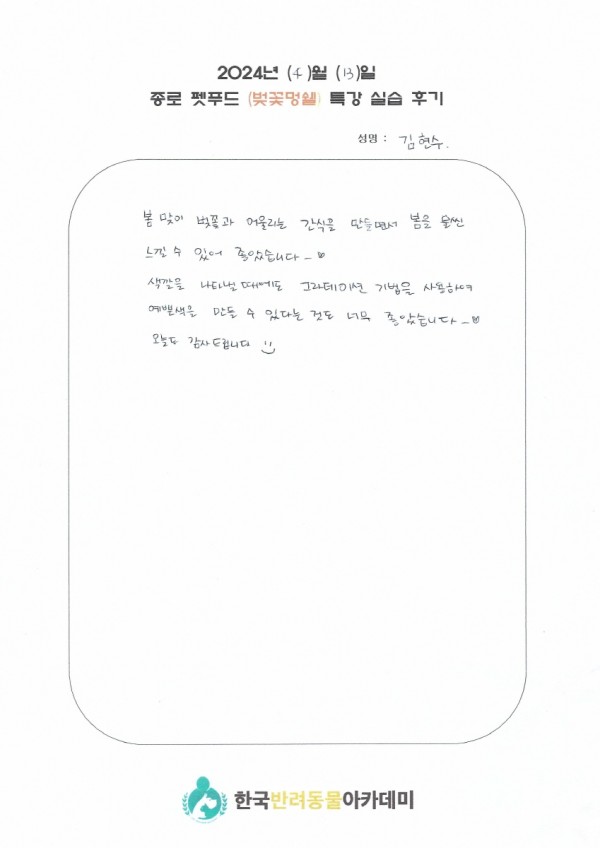 2024년 (4)월 (13)일
종로 펫푸드 (벚꽃멍쉘) 특강 실습 후기
성명 : 김현수.
봄 맞이 벚꽃과 어울리는 간식을 만들면서 봄을 물씬
느낄 수 있어 좋았습니다~♡
색깔을 나타낼 때에도 그라데이션 기법을 사용하여
예쁜색을 만들 수 있다는 것도 너무 좋았습니다~♡
오늘도 감사드립니다 :)
한국반려동물아카데미